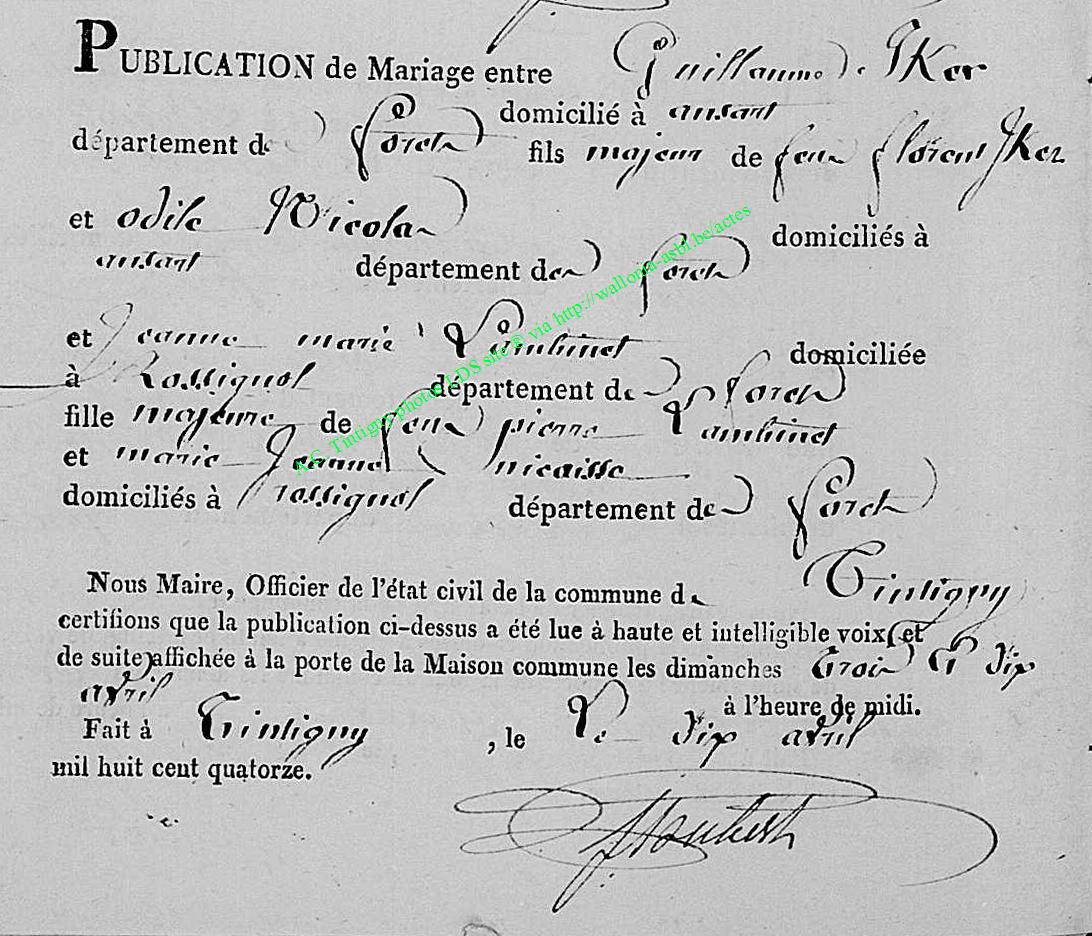 PUBLICATION de Mariage entre Guillaume JKer
domicilié à ansart
département de forets fils majeur de feu florent JKer
et odile Nicolas domiciliés à
ansart département des forets
et Jeanne marie Lambinet domiciliée
à Rossignol département des forets
fille majeure de feu pierre Lambinet
et marie Jeanne nicaisse
domiciliés à rossignol département des forets
Nous Maire, Officier de l'état civil de la commune de Tintigny
certifions que la publication ci-dessus a été lue à haute et intelligible voix (et
de suite) affichée à la porte de la Maison commune les dimanches trois et dix
avril à l'heure de midi.
Fait à Tintigny, le Le dix avril
mil huit cent quatorze.
A.C. Tintigny photos LDS site ® via http://wallonia-asbl.be/actes